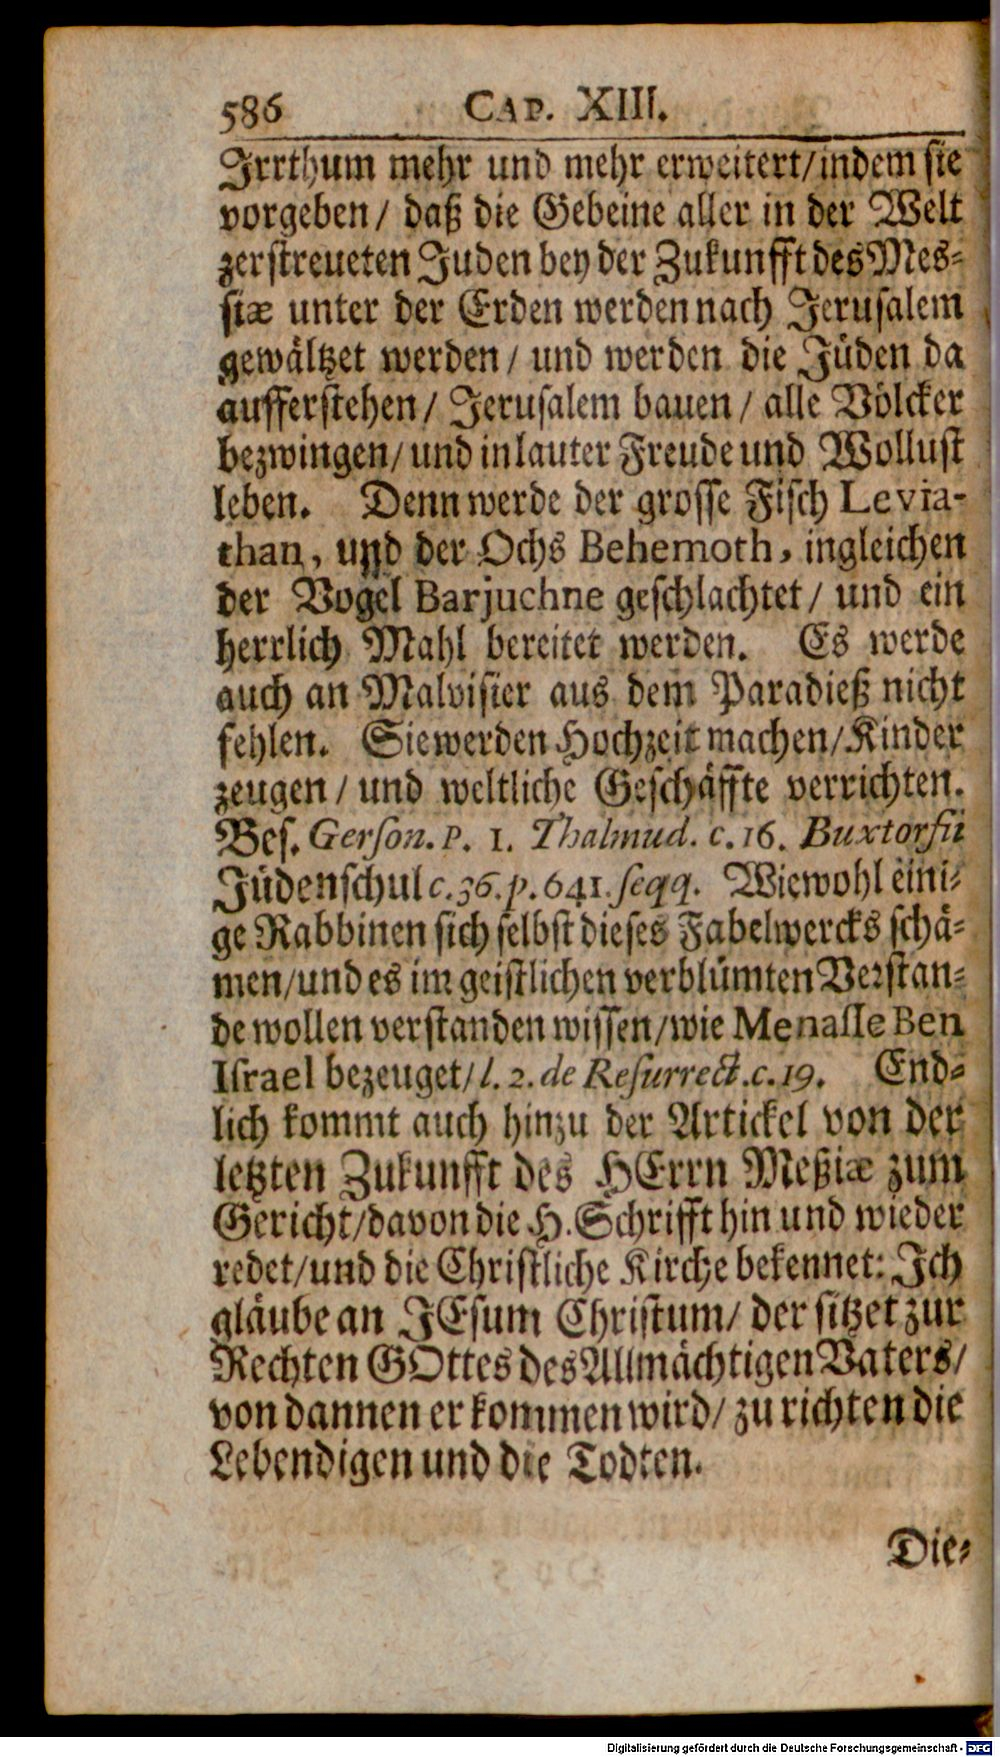 586 CAP. XIII.
Irrthum mehr und mehr erweitert/indem sie
vorgeben/ daß die Gebeine aller in der Welt
zerstreueten Juden bey der Zukunfft des Mes-
siæ unter der Erden werden nach Jerusalem
gewältzet werden/ und werden die Jüden da
aufferstehen/ Jerusalem bauen/ alle Völcker
bezwingen/und in lauter Freude und Wollust
leben. Denn werde der grosse Fisch Levia-
than, und der Ochs Behemoth, ingleichen
der Vogel Barjuchne geschlachtet/ und ein
herrlich Mahl bereitet werden. Es werde
auch an Malvisier aus dem Paradieß nicht
fehlen. Sie werden Hochzeit machen/Kinder
zeugen/ und weltliche Geschäffte verrichten.
Bes. Gerson. P. 1. Thalmud. c. 16. Buxtorfii
Jüdenschul c. 36. p. 641. seqq. Wiewohl eini-
ge Rabbinen sich selbst dieses Fabelwercks schä-
men/und es im geistlichen verblümten Verstan-
de wollen verstanden wissen/wie Menasse Ben
Israel bezeuget/l. 2. de Resurrect. c. 19. End-
lich kommt auch hinzu der Artickel von der
letzten Zukunfft des HErrn Meßiæ zum
Gericht/davon die H. Schrifft hin und wieder
redet/und die Christliche Kirche bekennet: Ich
gläube an JEsum Christum/ der sitzet zur
Rechten GOttes des Allmächtigen Vaters/
von dannen er kommen wird/ zu richten die
Lebendigen und die Todten.
Die-
Digitalisierung gefördert durch die Deutsche Forschungsgemeinschaft - DFG